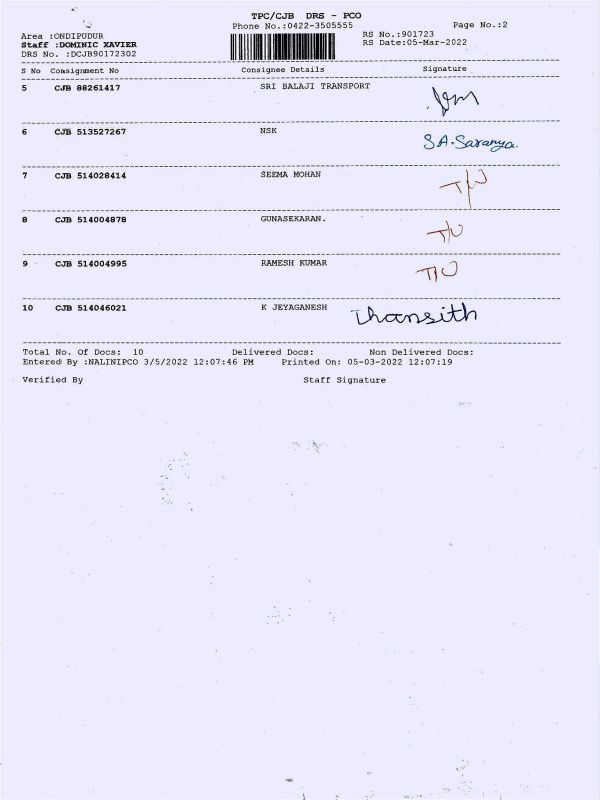 TPC/CJB DRS - PCO
Phone No.:0422-3505555 Page No.:2
Area :ONDIPUDUR RS No.:901723
Staff :DOMINIC XAVIER RS Date:05-Mar-2022
DRS No. :DCJB90172302
S No Consignment No Consignee Details Signature
5 CJB 88261417 SRI BALAJI TRANSPORT
6 CJB 513527267 NSK S.A.Saranya.
7 CJB 514028414 SEEMA MOHAN T/U
8 CJB 514004878 GUNASEKARAN. T/U
9 CJB 514004995 RAMESH KUMAR T/U
10 CJB 514046021 K JEYAGANESH Thansith
Total No. Of Docs: 10 Delivered Docs: Non Delivered Docs:
Entered By :NALINIPCO 3/5/2022 12:07:46 PM Printed On: 05-03-2022 12:07:19
Verified By Staff Signature